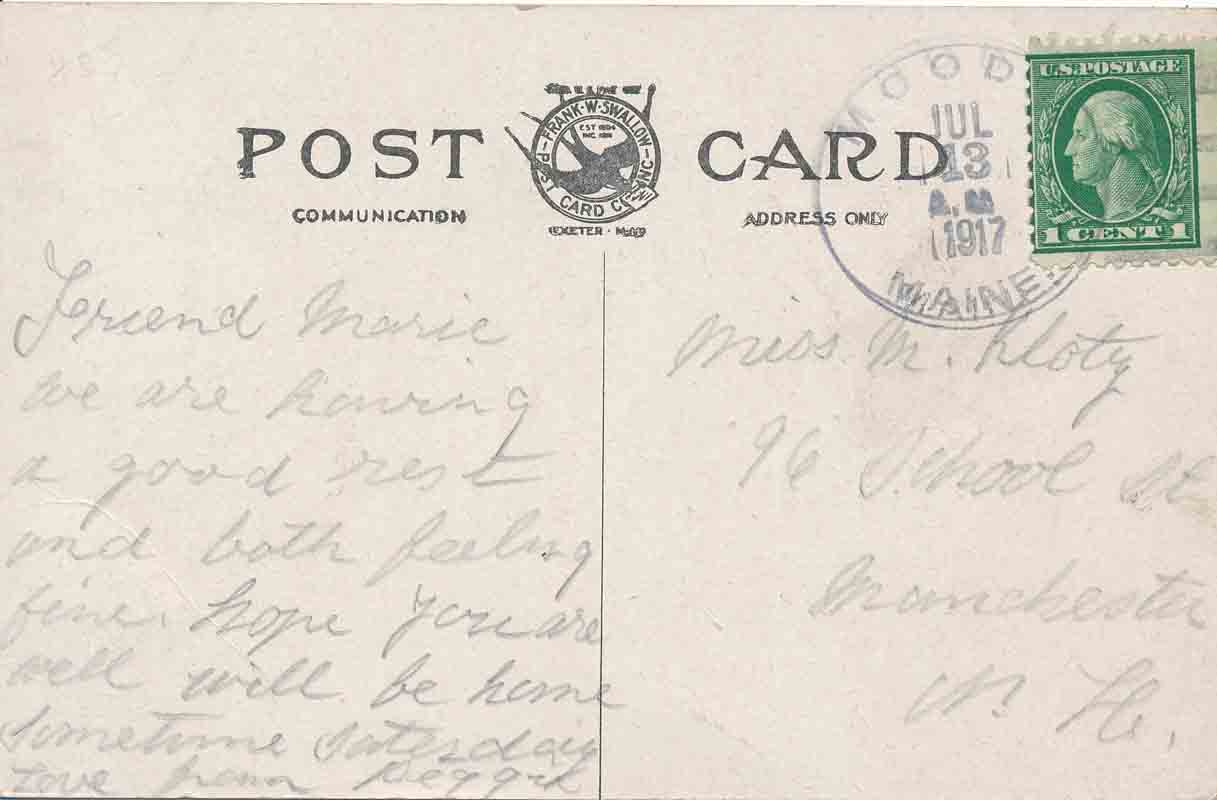 POST CARD
FRANK·W·SWALLOW
EST 1894
POST CARD CO INC
EXETER
COMMUNICATION
ADDRESS ONLY
MOOD
JUL
13
A.M
1917
MAINE.
U.S. POSTAGE
1 CENT 1
Friend Marie
we are having
a good rest
and both feeling
fine. hope you are
well will be home
sometime Saterday
Love from
Miss. M. Kloty
96 School St
Manchester
N. H.